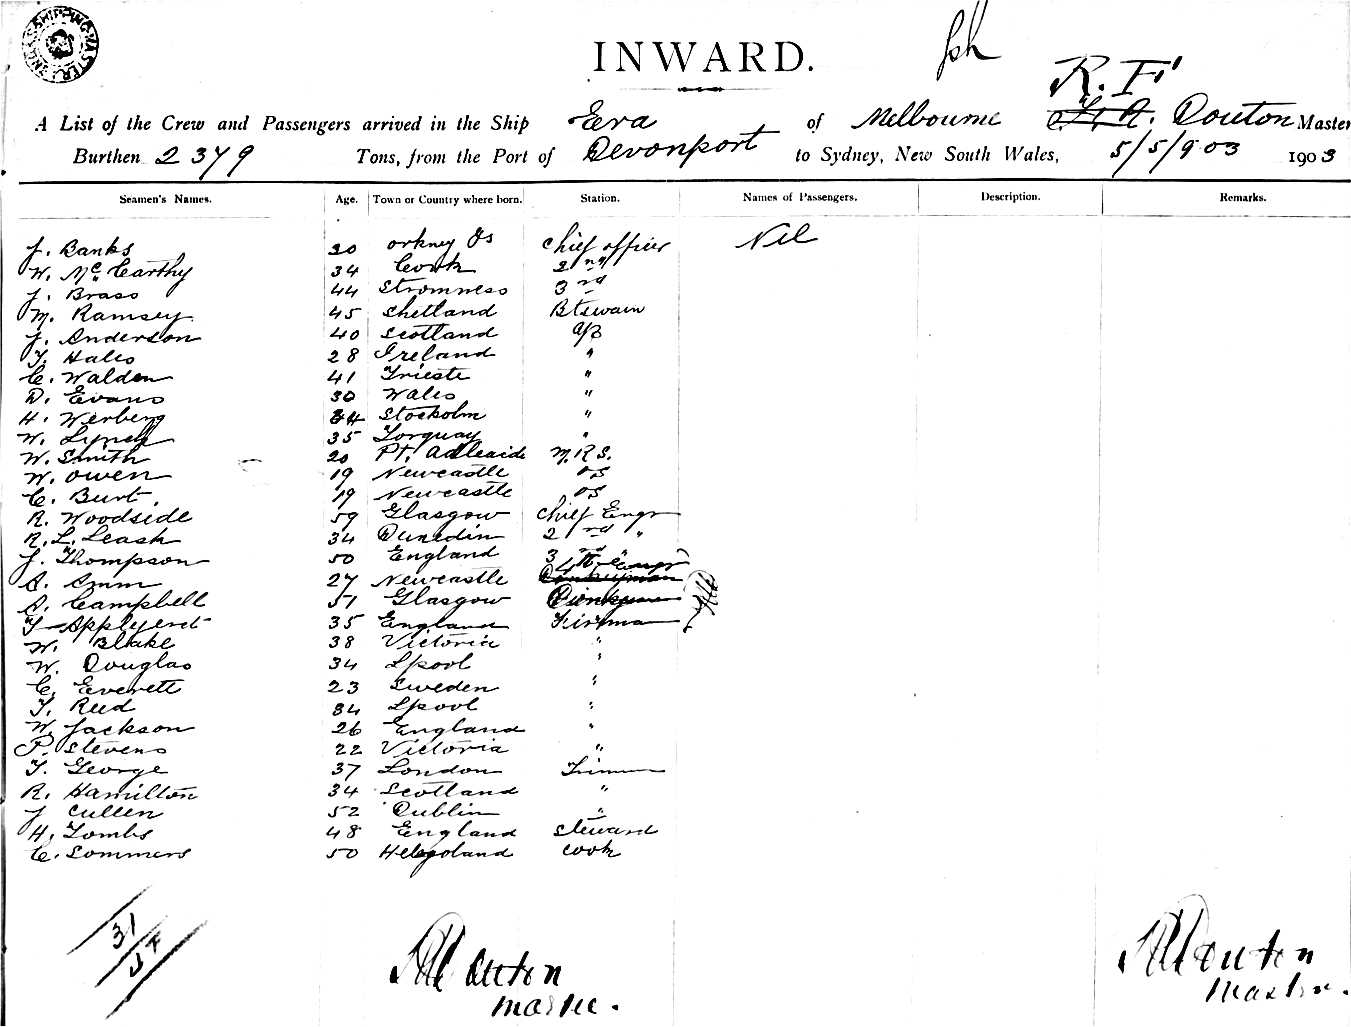 INWARD.
R. F.
A List of the Crew and Passengers arrived in the Ship Era of Melbourne Douton Master
Burthen 2379 Tons, from the Port of Devonport to Sydney, New South Wales, 5/5/903 1903
Seamen's Names. Age. Town or Country where born. Station. Names of Passengers. Description. Remarks.
J. Banks 30 orkney Is chief officer Nil
W. McCarthy 34 Cork 2nd
J. Brass 44 Stromness 3rd
M. Ramsey 45 Shetland Btswain
J. Anderson 40 Scotland A/B
T. Hales 28 Ireland "
C. Walden 41 Trieste "
D. Evans 30 Wales "
H. Werberg 34 Stockolm "
W. Lynch 35 Torquay "
W. Smith 20 Pt. Adleaide M.R.S.
W. Owen 19 Newcastle OS
C. Burt 19 Newcastle OS
R. Woodside 59 Glasgow Chief Engr
R. L. Leash 34 Dunedin 2nd "
J. Thompson 50 England 3rd "
A. Amm 27 Newcastle 4th Engr
A. Campbell 51 Glasgow
T. Appleyard 35 England Firsman
W. Blake 38 Victoria "
W. Douglas 34 Lpool "
C. Everett 23 Sweden "
T. Reed 34 Lpool "
W. Jackson 26 England "
P. Stevens 22 Victoria "
T. George 37 London Trimm
R. Hamilton 34 Scotland "
J Cullen 52 Dublin "
H. Tombs 48 England Steward
C. Sommers 50 Helegoland Cook
31
Douton Douton
Master. Master.